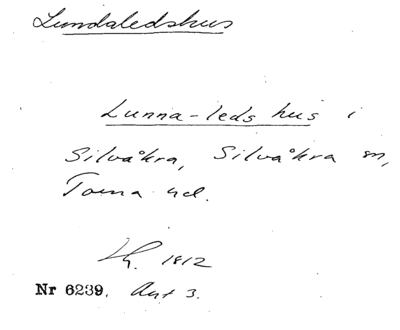 Lundaledshus
Lunna-leds hus i
Silvåkra, Silvåkra sn,
Torna hd.
1812
Nr 6239. Ant 3.